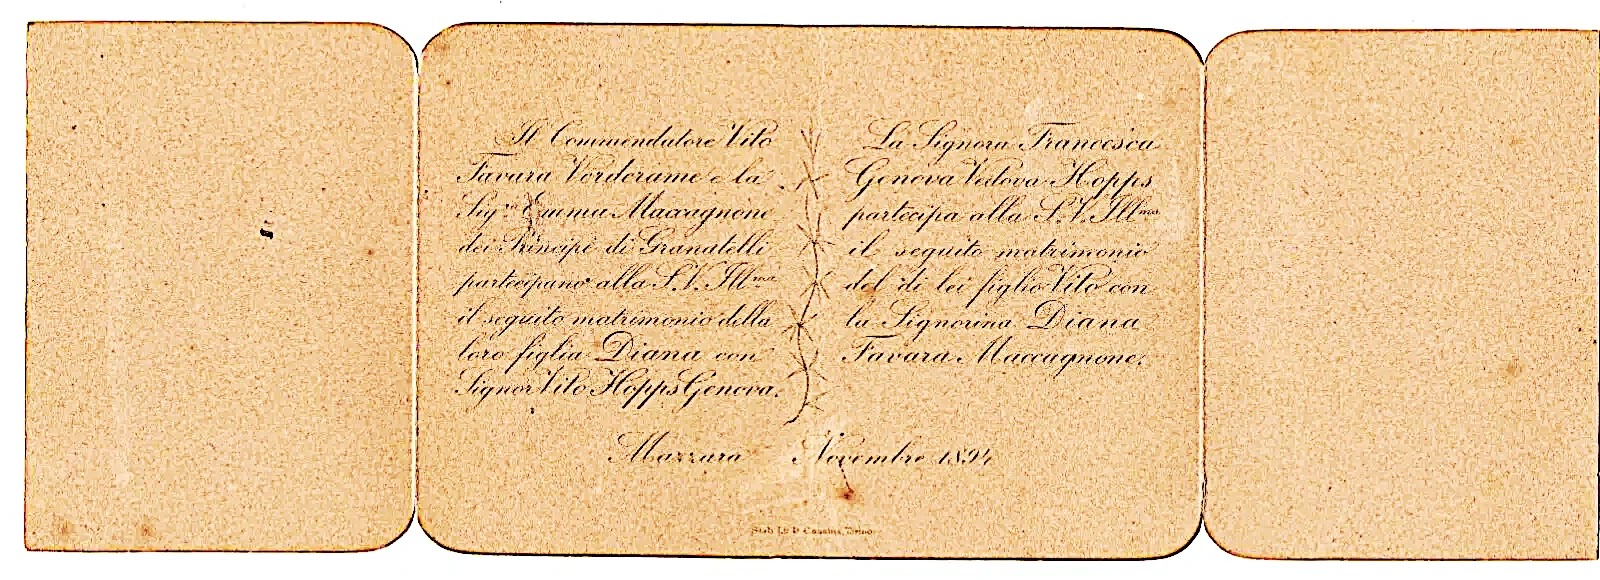 Il Commendatore Vito
Favara Verderame e la
Sig.ra Emma Maccagnone
dei Principi di Granatelli
partecipano alla S.V. Ill.ma
il seguito matrimonio della
loro figlia Diana con
Signor Vito Hopps Genova.
La Signora Francesca
Genova Vedova Hopps
partecipa alla S.V. Ill.ma
il seguito matrimonio
del di lei figlio Vito con
la Signorina Diana
Favara Maccagnone.
Mazzara Novembre 1894